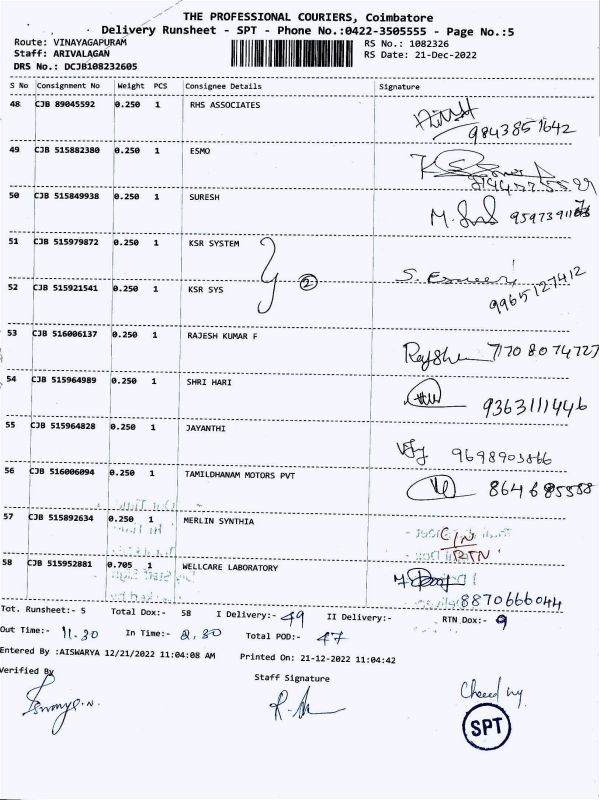 THE PROFESSIONAL COURIERS, Coimbatore
Delivery Runsheet - SPT - Phone No.:0422-3505555 - Page No.:5
Route: VINAYAGAPURAM RS No.: 1082326
Staff: ARIVALAGAN RS Date: 21-Dec-2022
DRS No.: DCJB108232605
S No Consignment No Weight PCS Consignee Details Signature
48 CJB 89045592 0.250 1 RHS ASSOCIATES
9843851642
49 CJB 515882380 0.250 1 ESMO
50 CJB 515849938 0.250 1 SURESH
51 CJB 515979872 0.250 1 KSR SYSTEM
52 CJB 515921541 0.250 1 KSR SYS 2
9965127412
53 CJB 516006137 0.250 1 RAJESH KUMAR F
71708074727
54 CJB 515964989 0.250 1 SHRI HARI
9363111446
55 CJB 515964828 0.250 1 JAYANTHI
56 CJB 516006094 0.250 1 TAMILDHANAM MOTORS PVT
57 CJB 515892634 0.250 1 MERLIN SYNTHIA
RTN
58 CJB 515952881 0.705 1 WELLCARE LABORATORY
8870666044
Tot. Runsheet:- 5 Total Dox:- 58 I Delivery:- 49 II Delivery:- RTN Dox:- 9
Out Time:- 11.30 In Time:- 2.30 Total POD:- 47
Entered By :AISWARYA 12/21/2022 11:04:08 AM Printed On: 21-12-2022 11:04:42
Verified By Staff Signature
SPT